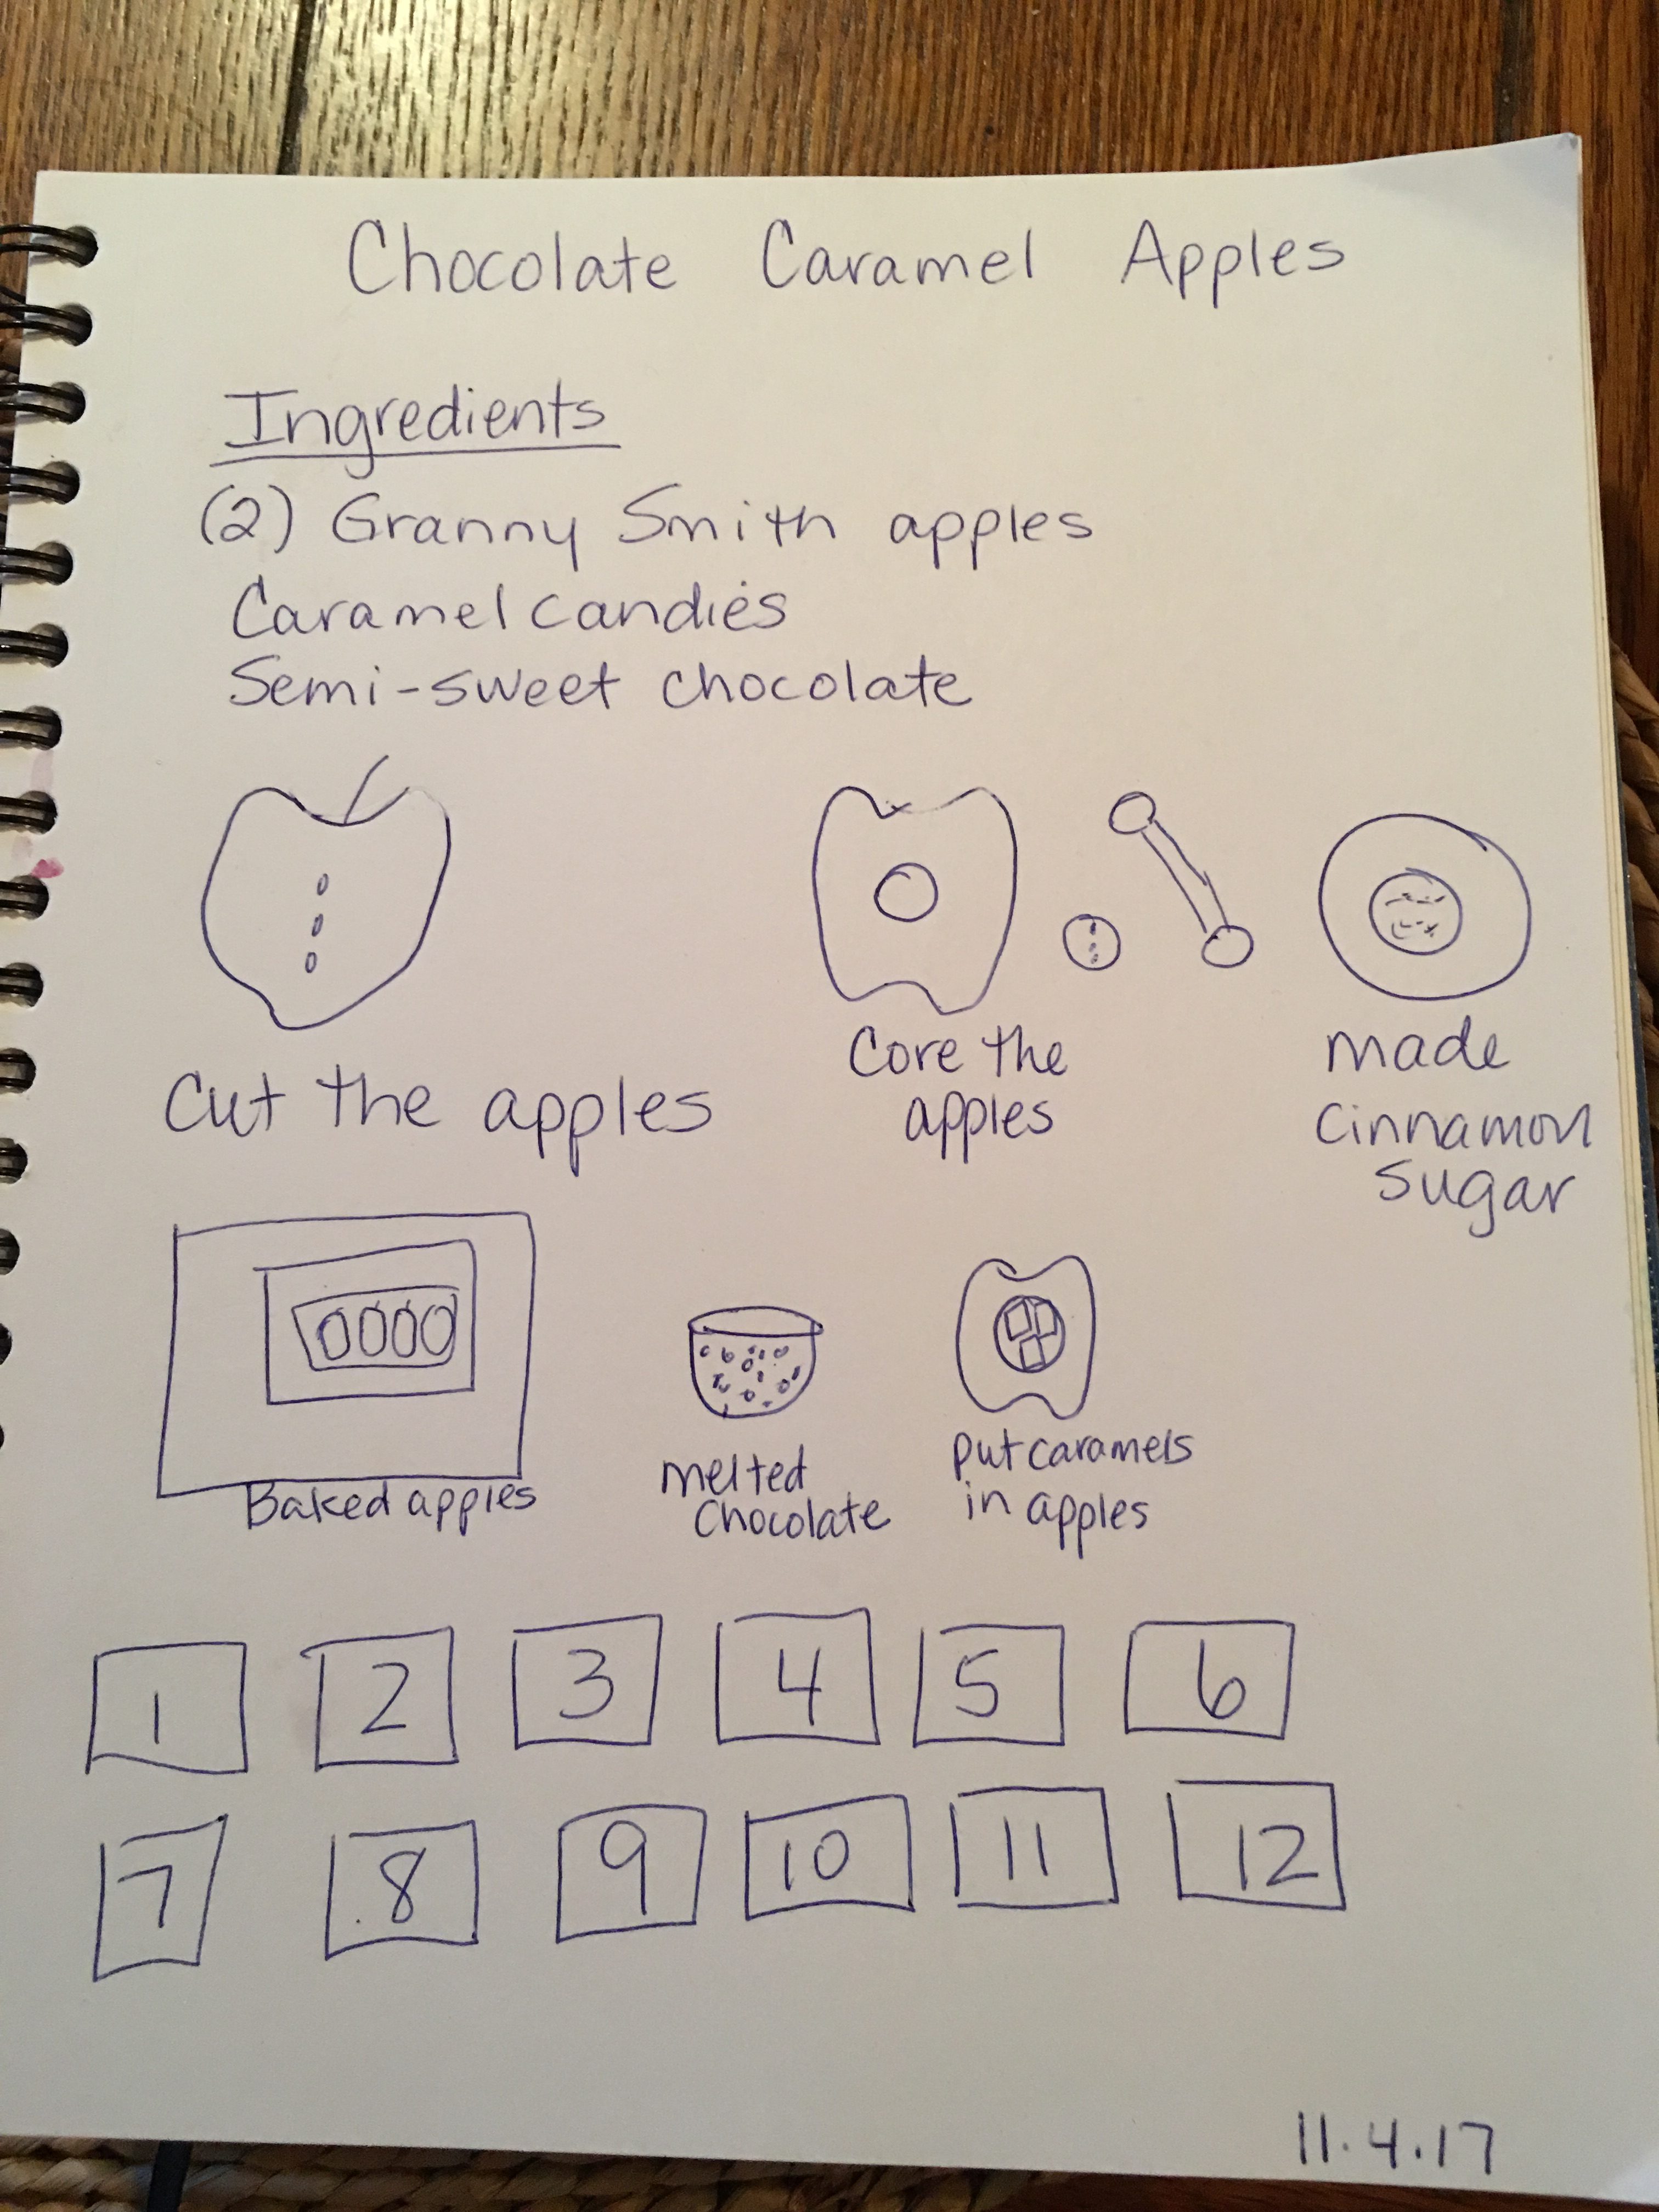 Chocolate Caramel Apples
Ingredients
(2) Granny Smith apples
Caramel candies
Semi-sweet chocolate
Cut the apples
Core the
apples
made
cinnamon
sugar
Baked apples
melted
Chocolate
put caramels
in apples
1 2 3 4 5 6
7 8 9 10 11 12
11.4.17